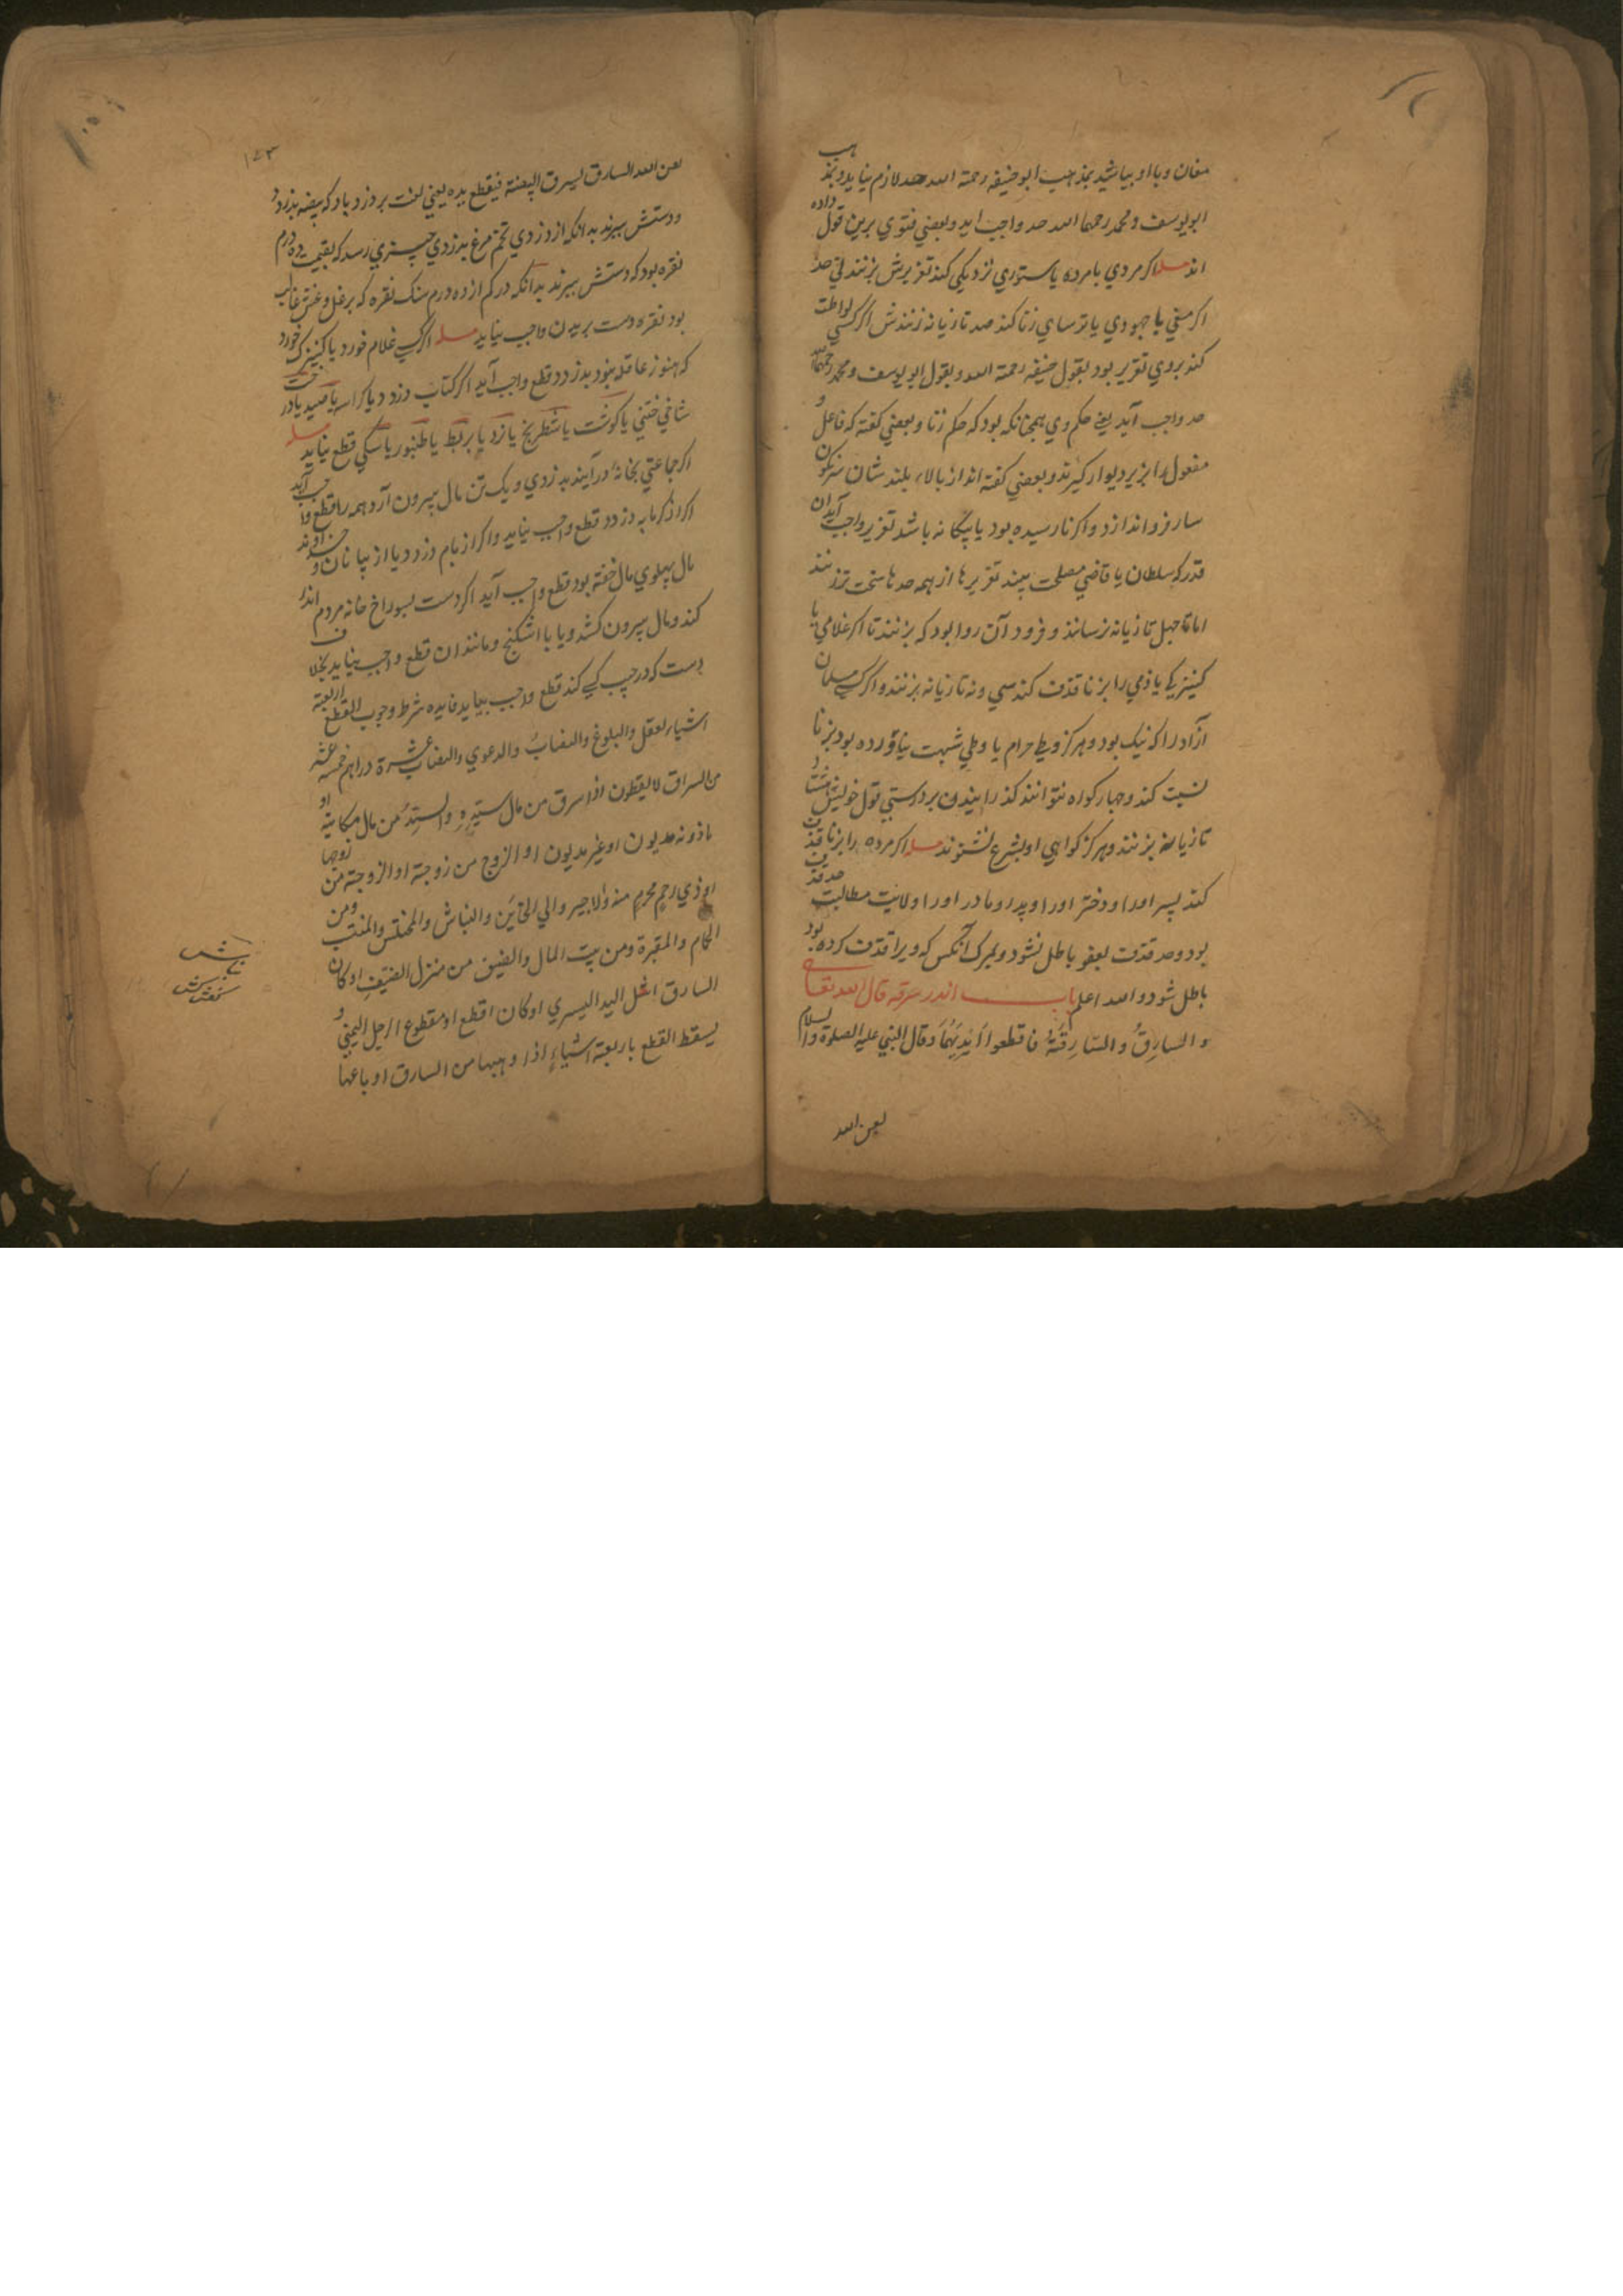 مغان و با او بباشید بمذهب ابو حنیفه رحمة الله حد لازم نیاید و بمذهب
ابو یوسف و محمد رحمهما الله حد واجب اید و بعضي فتوي برین قول داده
اند مسله اکر مردي با مرده یا ستوري نزدیکي کند تعزیرش بزنند ني حد
اکر مغي یا جهودي یا ترساي زنا کند صد تازیانه زنندش اکر کسي لواطت
کند بروي تعزیر بود بقول حنیفه رحمة الله و بقول ابو یوسف و محمد رحمهما الله
حد واجب آید یعني حکم وي همچنانکه بود که حکم زنا و بعضي کفته که فاعل و
مفعول را بزیر دیوار کیرند و بعضي کفته اند از بالاء بلند شان سرنکون
سار فرو اندازد و اکر نارسیده بود یا بیکانه باشد تعزیر واجب آید ان
قدر که سلطان یا قاضي مصلحت بیند تعزیرها از همه حدها سخت تر زنند
اما تا چهل تازیانه نرسانند و فرود آن روا بود که بزنند تا اکر غلامي یا
کنیزکي یا ذمي را بزنا قذف کند سي و نه تازیانه بزنند و اکر کسي مسلمان
آزاد را که نیک بود و هرکز وطي حرام یا وطي شبهت نیاورده بود بزنا
نسبت کند و چهار کواه نتوانند کذرانیدن بر درستي قول خویش هشتاد
تازیانه بزنند و هرکز کواهي او بشرع نشنوند مسله اکر مرده را بزنا قذف
کند پسر اورا و دختر اورا و پدر او مادر اورا ولایت مطالبت حد قذف
بود و حد قذف بعفو باطل نشود و بمرک آنکس که ویرا قذف کرده بود
باطل شود و الله اعلم باب اندر سرقه قال الله تعالي
و السارِقُ و السّارِقَةُ فاقطعوا اَیْدِیَهُمَا و قال النبي علیه الصلوة والسلام
لعن الله
۱۷۳
لعن الله السارق یسرق البیضة فیقطع یده یعني لعنت بر دزد باد که بیضه بدزدد
و دستش ببرند بدانکه از دزدي تخم مرغ بدزدي چیزي رسد که بقیمت ده درم
نقره بود که دستش ببرند بدانکه در کم از ده درم سنک نقره که بر غل و غش غالب
بود نقره دست بریدن واجب نیاید مسله اکر کسي غلام خورد یا کنیزک خورد
که هنوز عاقل نبود بدزدد قطع واجب آید اکر کتاب دزدد یا کراسه یا صید یا درخت
شاخي ختني یا کوشت یا شطرنج یا نرد یا بربط یا طنبور یا سکي قطع نیاید مسله
اکر جماعتي بخانهٔ در آیند بدزدي و یک تن مال بیرون آرد همه را قطع واجب آید
اکر از کرمابه دزدد قطع واجب نیاید و اکر از بام دزدد یا از بیابان و خداوند
مال پهلوي مال خفته بود قطع واجب آید اکر دست بسوراخ خانه مردم اندر
کند و مال بیرون کشد و یا با اشکنج و مانند ان قطع واجب نیاید بخلاف
دست که در جیب کسي کند قطع واجب بیاید فایده شرط وجوب القطع اربعة
اشیاء العقل والبلوغ والنصابُ والدعوي والنصاب عشرة دراهم خمسة عشر
من السراق لا یقطعون اذا سرق من مال سیّدِهِ والسیّدُ من مال مکاتبه او
ماذونه مدیون او غیر مدیون او الزوج من زوجة او الزوجة من زوجها
او ذي رحم محرم منه والاجیر والي الخائن والنباش والمختلس والمنتهب ومن
الحمام والمقبرة ومن بیت المال والضیف من منزل المضیفِ او کان
السارق اشل الید الیسري او کان اقطع او مقطوع الرجل الیمني و
یسقط القطع باربعة اشیاءٍ اذا وهبها من السارق او باعها
نباش
کفن کش